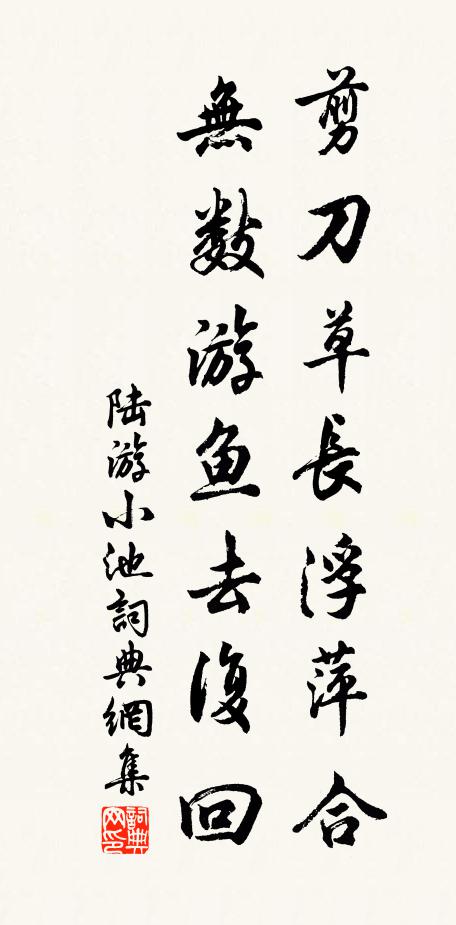 剪刀草長浮萍合
無數游鱼去復回
陆游小池詞典網集
詞典网印